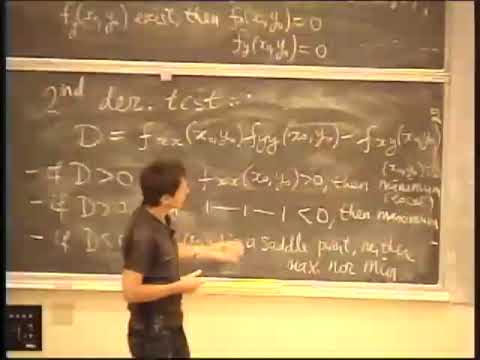 f_y(x_0,y_0) exist, then f_x(x_0,y_0)=0
f_y(x_0,y_0)=0
2nd der. test:
D = f_xx(x_0,y_0) f_yy(x_0,y_0) - f_xy(x_0,y_0)^2
- if D>0 f_xx(x_0,y_0)>0, then minimum
- if D>0 1—1—1 <0, then maximum
- if D< a saddle point, neither
max nor min